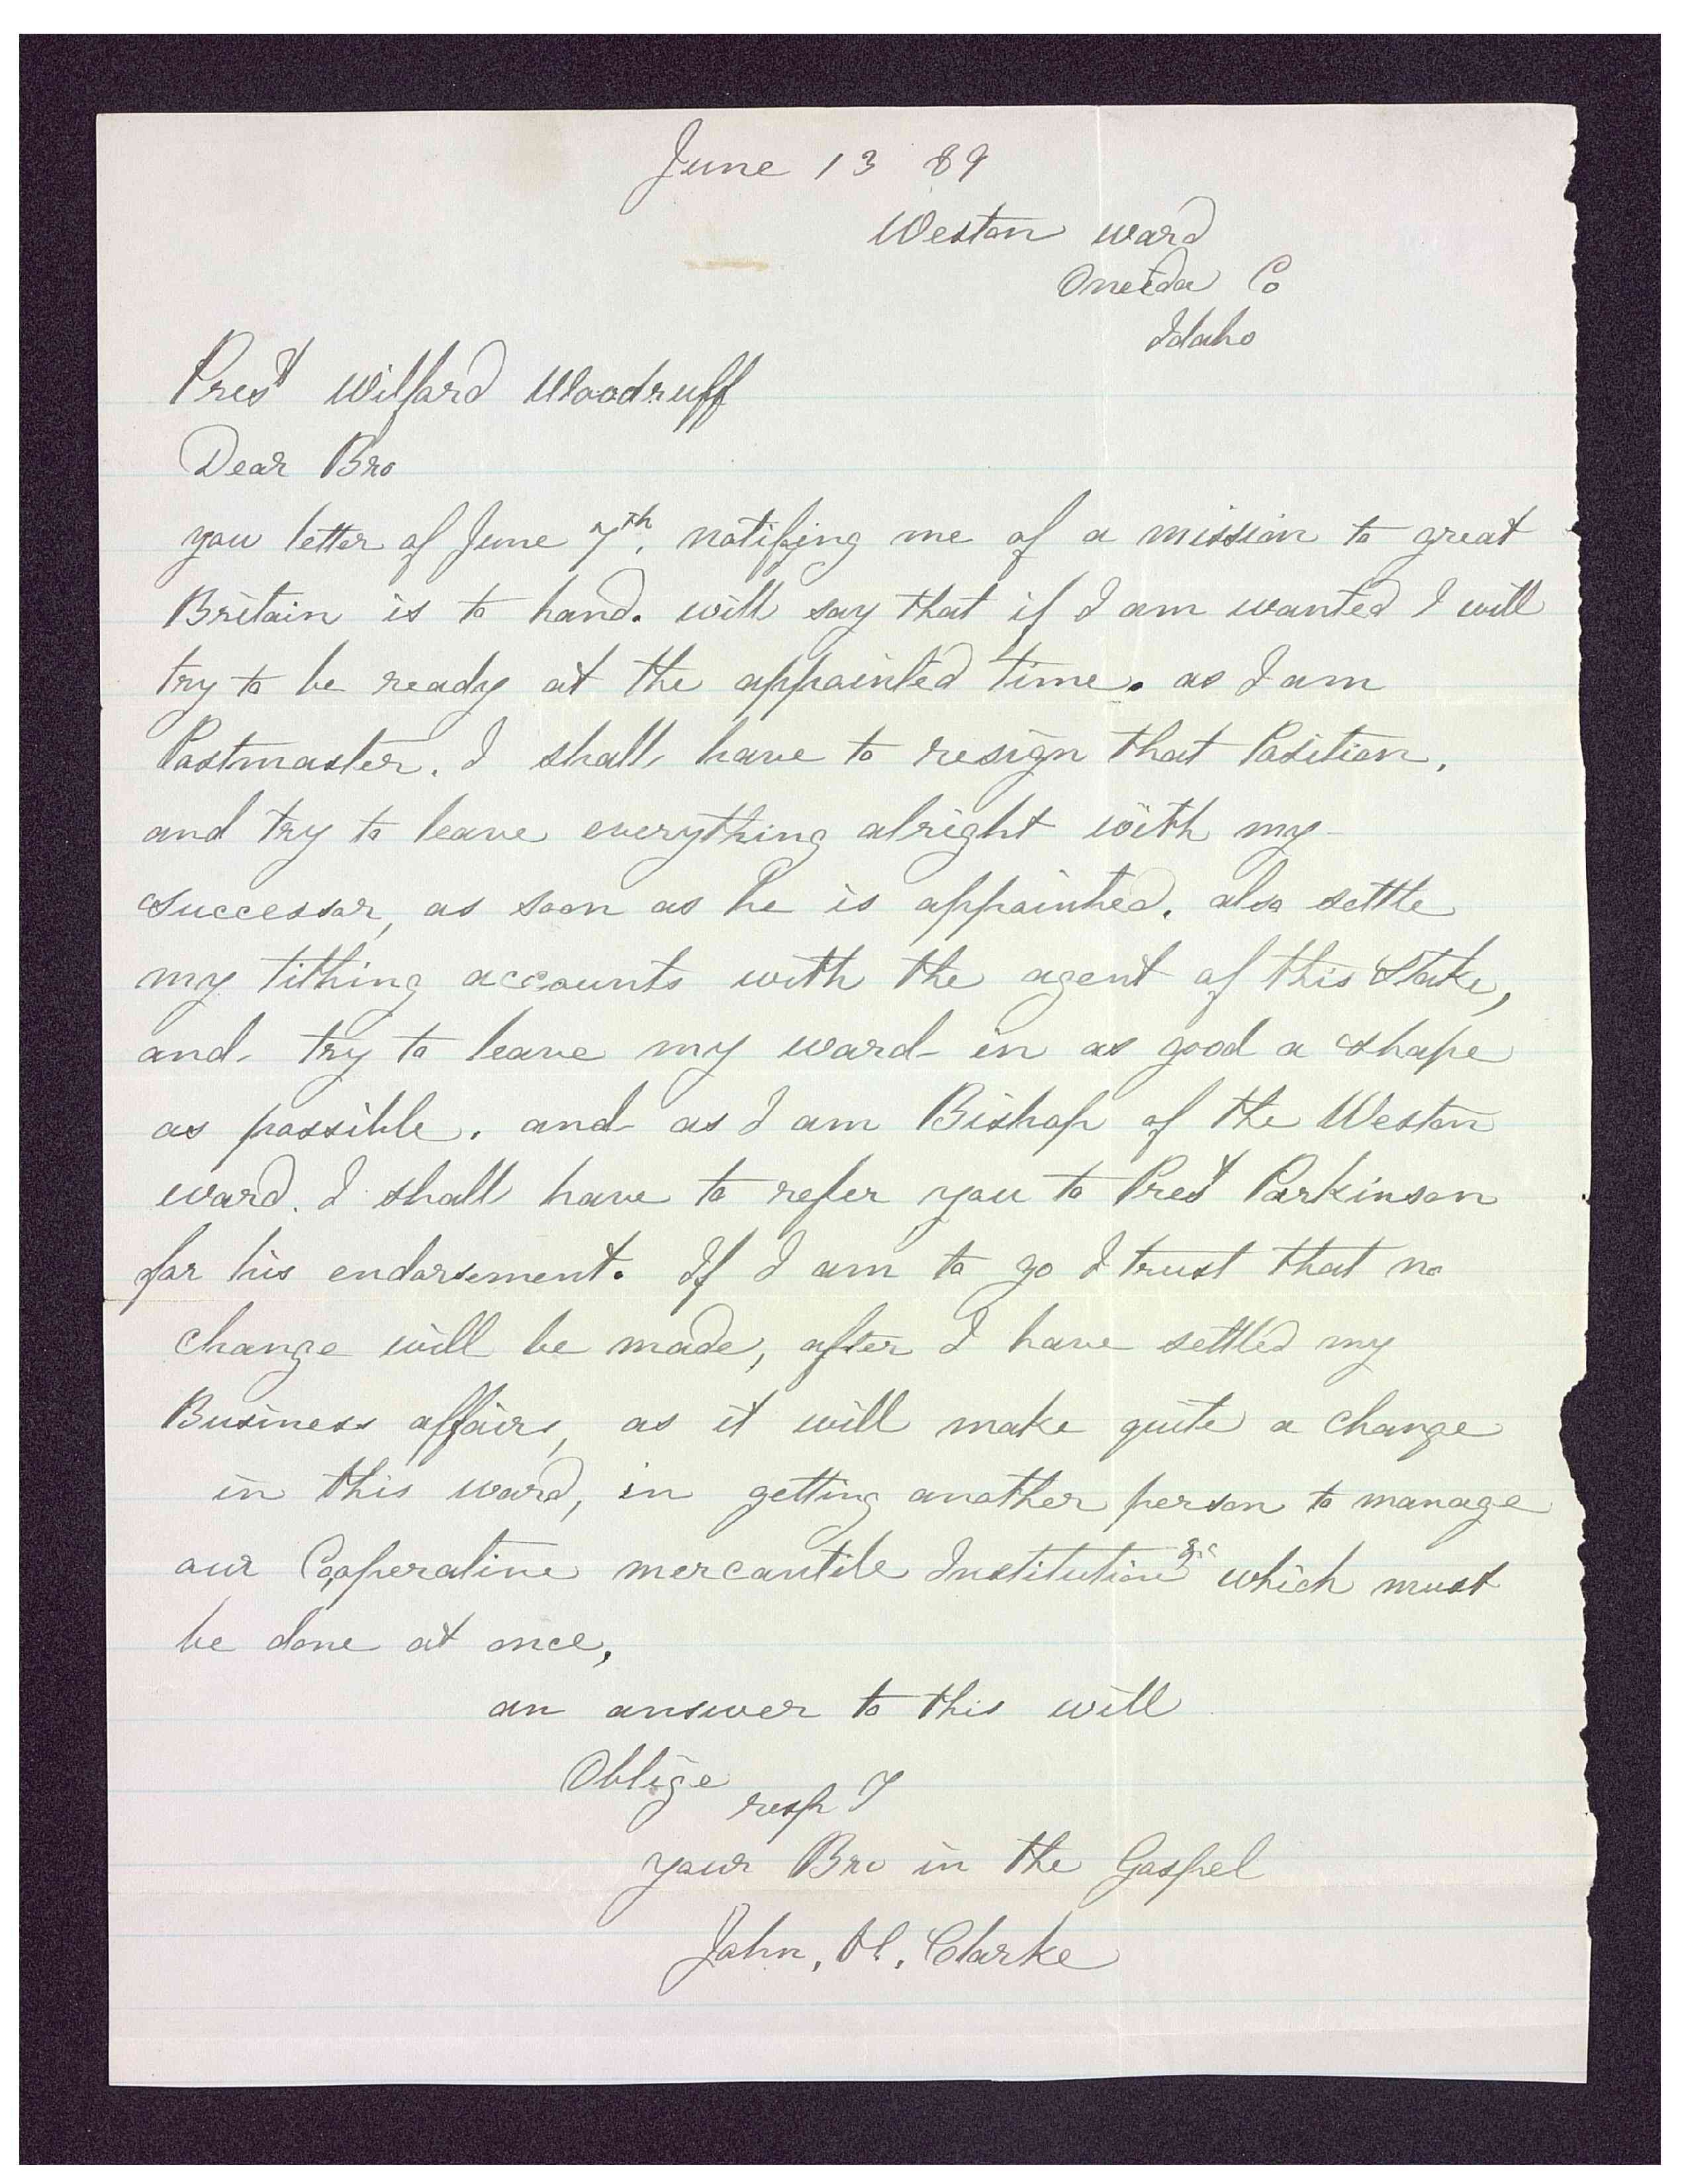 June 13 89
Weston ward
Oneida Co
Idaho
Prest Wilford Woodruff
Dear Bro
you letter of June 7th, notifing me of a mission to great
Britain is to hand. will say that if I am wanted I will
try to be ready at the appointed time. as I am
Postmaster. I shall have to resign that Position.
and try to leave everything alright with my
successor, as soon as he is appointed. also settle
my tithing accounts with the agent of this Stake,
and try to leave my ward in as good a shape
as possible. and as I am Bishop of the Weston
ward. I shall have to refer you to Prest Parkinson
for his endorsement. If I am to go I trust that no
change will be made, after I have settled my
Business affairs, as it will make quite a change
in this ward, in getting another person to manage
our Cooperative mercantile Institution &c which must
be done at once,
an answer to this will
Oblige
resp I
your Bro in the Gospel
John, H, Clarke